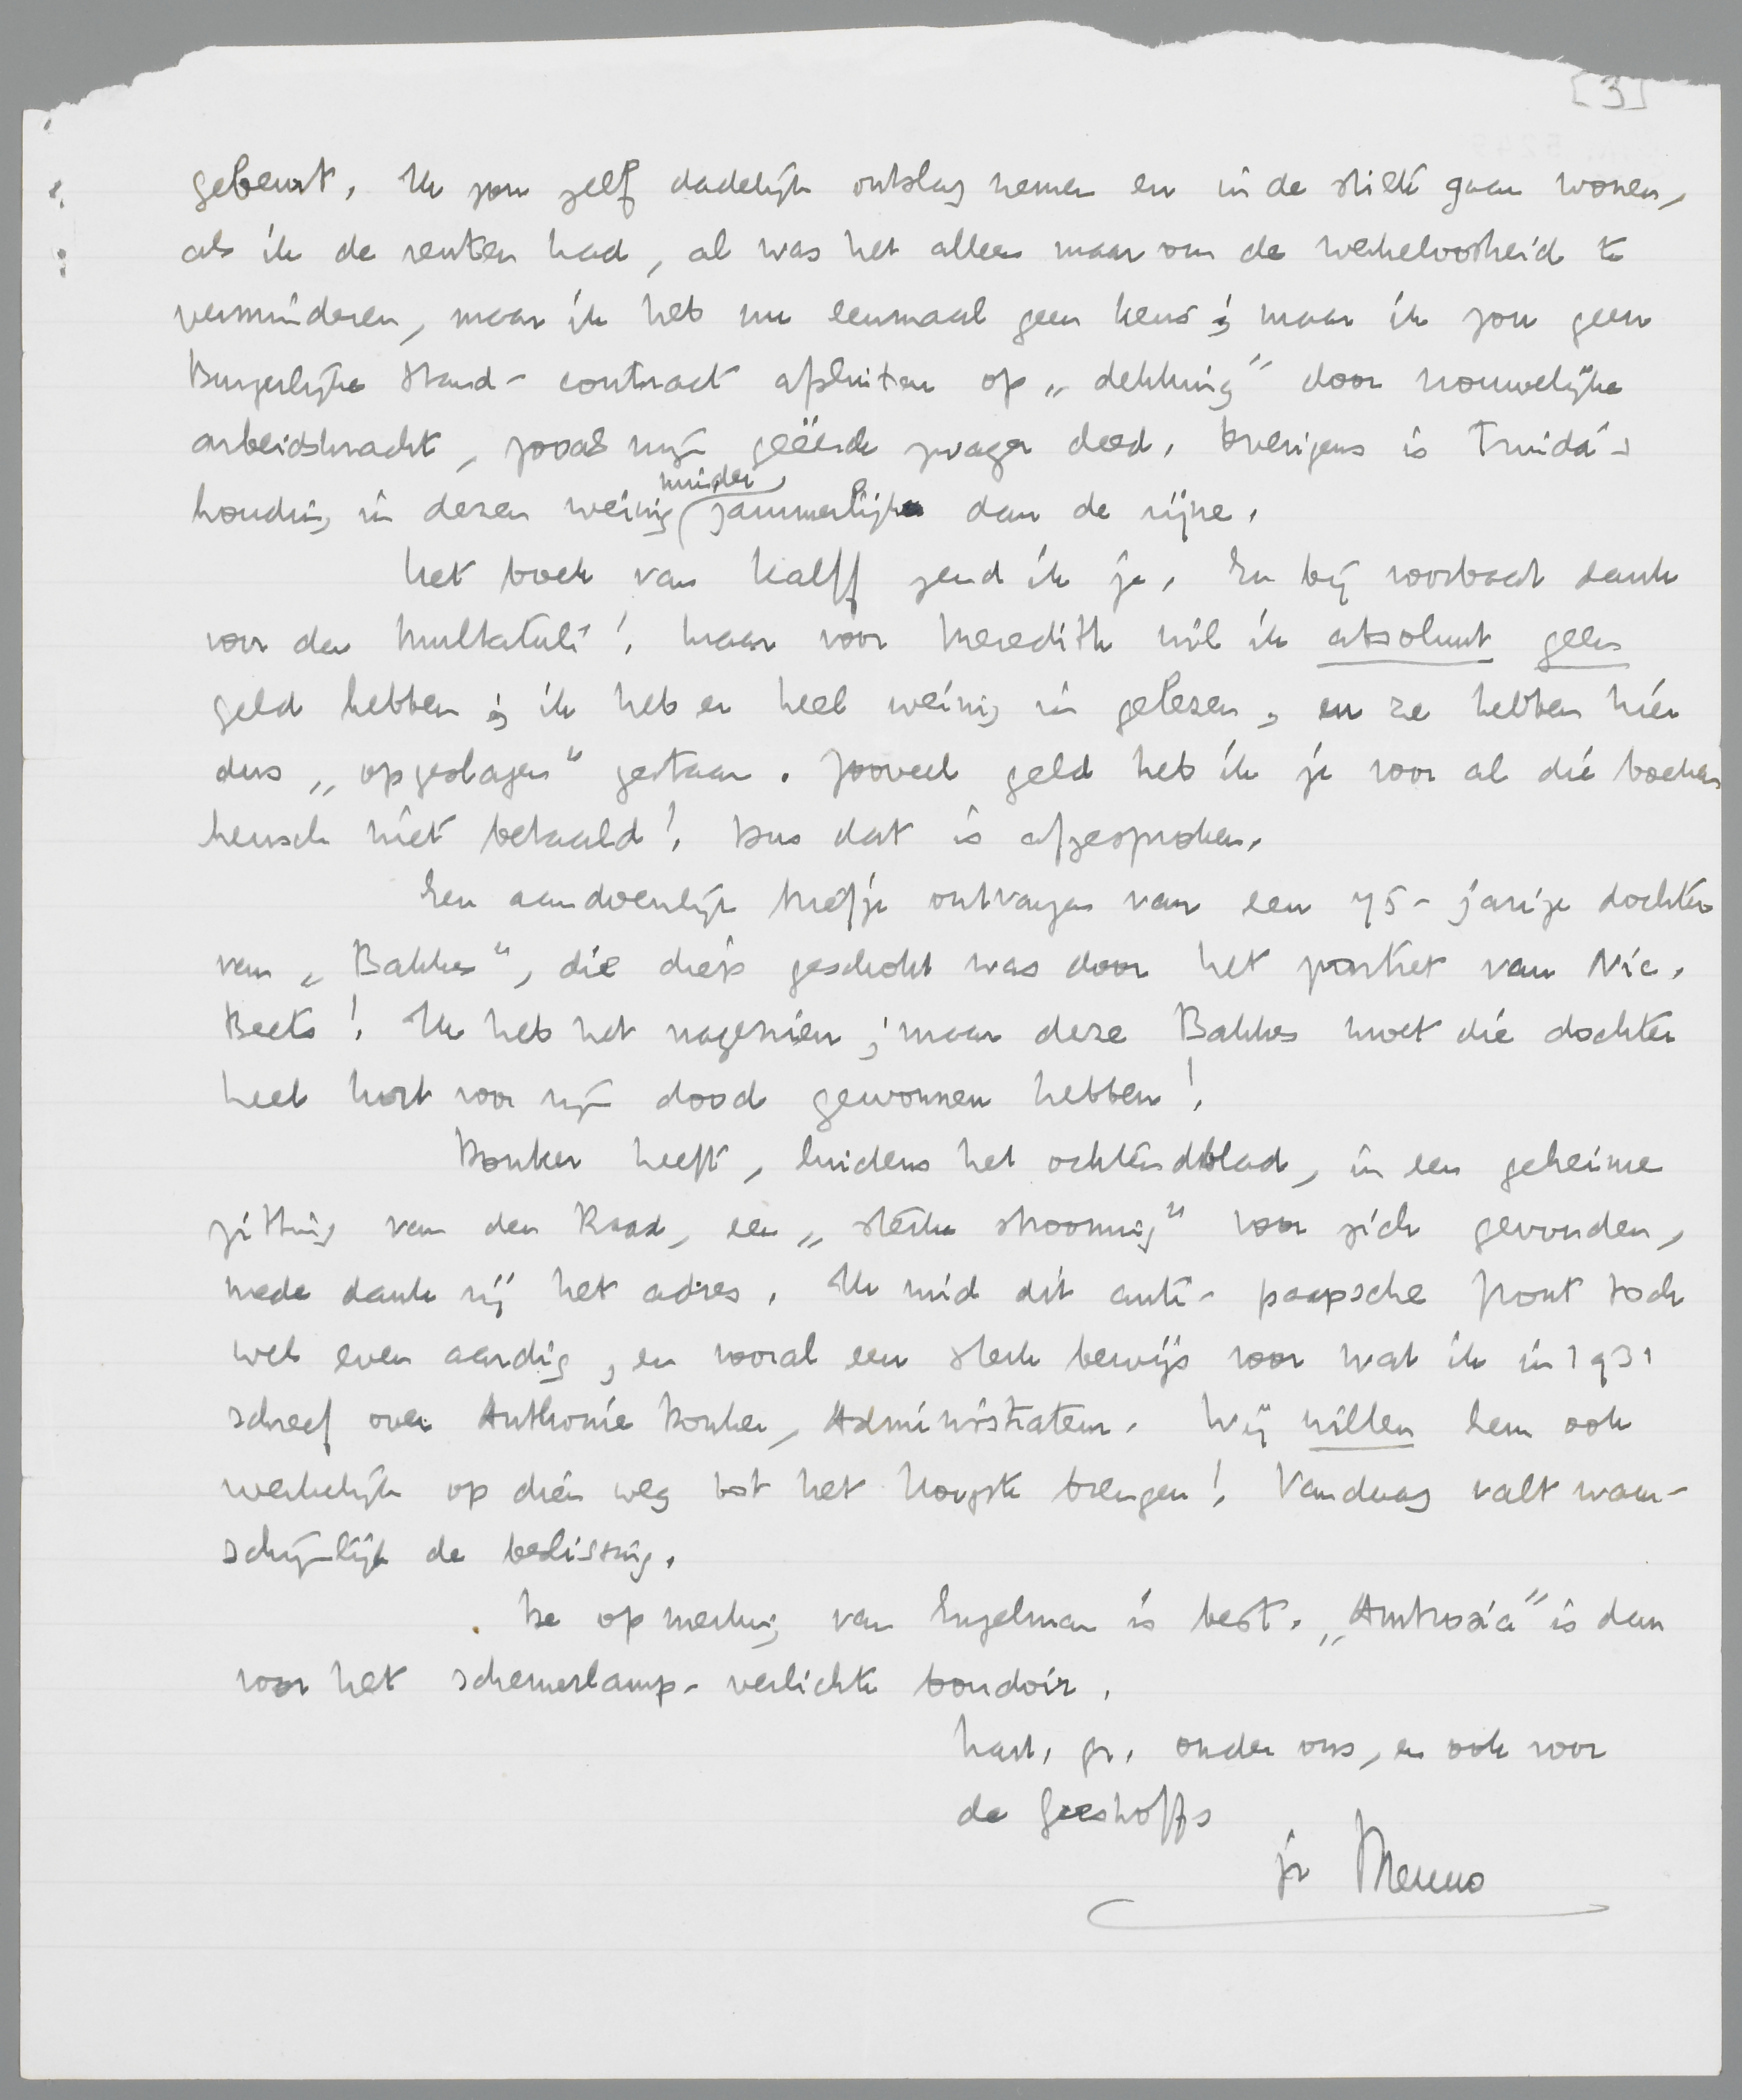 [3]
gebeurt. Ik zou zelf dadelijk ontslag nemen en in de stilte gaan wonen,
als ik de renten had, al was het alleen maar om de werkeloosheid te
verminderen, maar ik heb nu eenmaal geen keus; maar ik zou geen
Burgerlijke Stand-contract afsluiten op „dekking” door vrouwelijke
arbeidskracht, zooals mijn geëerde zwager deed. Overigens is Truida's
houding in dezen weinig minder jammerlijk dan de zijne.
Het boek van Kalff zend ik je. En bij voorbaat dank
voor den Multatuli! Maar voor Meredith wil ik absoluut geen
geld hebben; ik heb er heel weinig in gelezen, en ze hebben hier
dus „opgeslagen” gestaan. Zooveel geld heb ik je voor al die boeken
heusch niet betaald! Dus dat is afgesproken.
Een aandoenlijk briefje ontvangen van een 75-jarige dochter
van „Bakhes”, die diep geschokt was door het portret van Nic.
Beets! Ik heb het nagezien; maar deze Bakhes moet die dochter
heel kort voor zijn dood gewonnen hebben!
Donker heeft, luidens het ochtendblad, in een geheime
zitting van den Raad, een „sterke strooming” voor zich gevonden,
mede dank zij het adres. Ik vind dit anti-paapsche front toch
wel even aardig, en vooral een sterk bewijs voor wat ik in 1931
schreef over Anthonie Donker, Administrateur. Wij willen hem ook
werkelijk op dien weg tot het hoogste brengen! Vandaag valt waar-
schijnlijk de beslissing.
De opmerking van Engelman is best. „Ambrosia” is dan
voor het schemerlamp-verlichte boudoir.
hart. gr. onder ons, en ook voor
de Greshoffs
je Menno